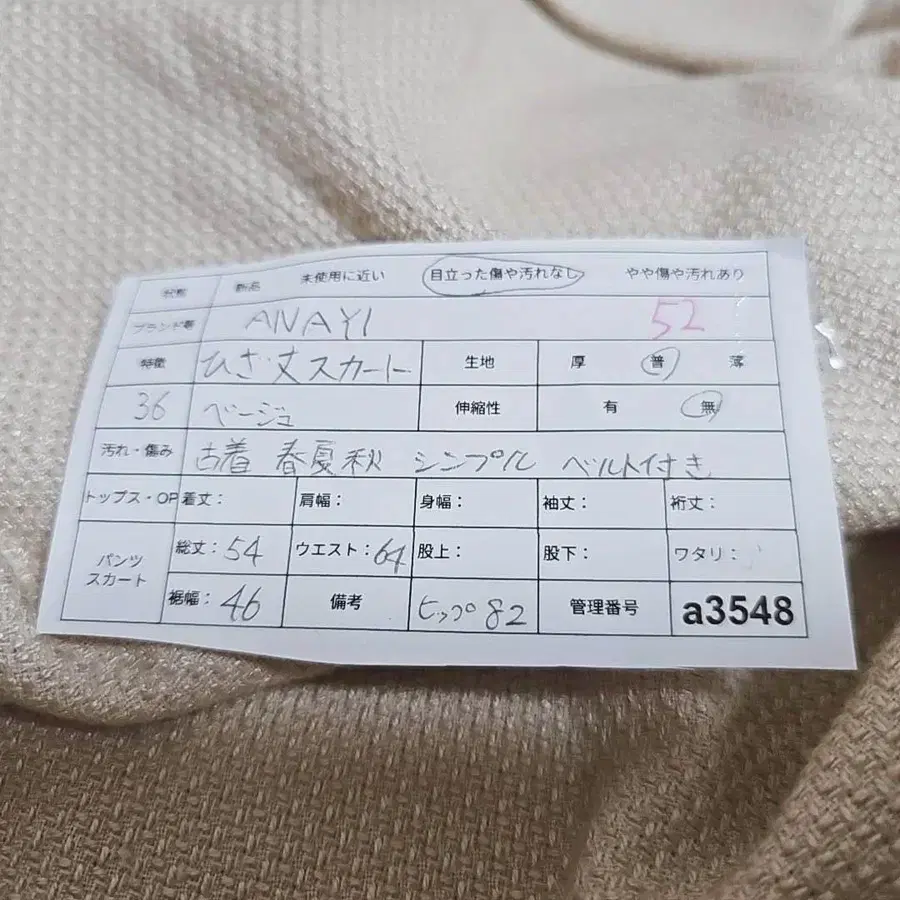 状態 新品 未使用に近い 目立った傷や汚れなし やや傷や汚れあり
ブランド名 ANAYI 52
特徴 ひざ丈スカート 生地 厚 普 薄
36 ベージュ 伸縮性 有 無
汚れ・傷み 古着 春夏秋 シンプル ベルト付き
トップス・OP 着丈: 肩幅: 身幅: 袖丈: 裄丈:
パンツ スカート 総丈:54 ウエスト:64 股上: 股下: ワタリ:
裾幅:46 備考 ヒップ82 管理番号 a3548